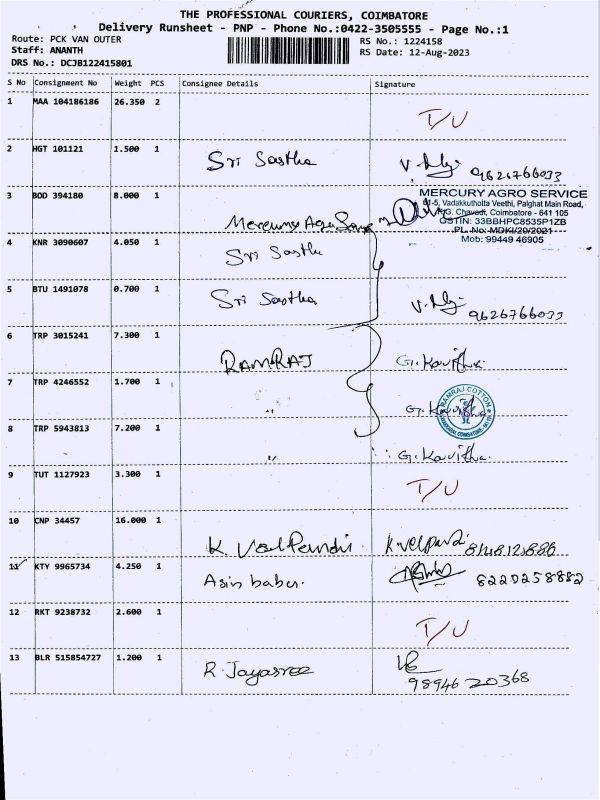 THE PROFESSIONAL COURIERS, COIMBATORE
Delivery Runsheet - PNP - Phone No.:0422-3505555 - Page No.:1
Route: PCK VAN OUTER
Staff: ANANTH
DRS No.: DCJB122415801
RS No.: 1224158
RS Date: 12-Aug-2023
S No Consignment No Weight PCS Consignee Details Signature
1 MAA 104186186 26.350 2 T/U
2 HGT 101121 1.500 1 Sri Sastha 9626766033
3 BOD 394180 8.000 1 Mercury Agro
MERCURY AGRO SERVICE
Vadakkuthotta Veethi, Palghat Main Road,
K.G. Chavadi, Coimbatore - 641 105
GSTIN: 33BBHPC8535P1ZB
PL. No: MDK/20/2021
Mob: 99449 46905
4 KNR 3090607 4.050 1 Sri Sastha
5 BTU 1491078 0.700 1 Sri Sastha 9626766033
6 TRP 3015241 7.300 1 RAMRAJ G. Kavitha
7 TRP 4246552 1.700 1 " G. Kavitha
RAMRAJ COTTON
8 TRP 5943813 7.200 1 " G. Kavitha
9 TUT 1127923 3.300 1 T/U
10 CNP 34457 16.000 1 K. VelPandi K.velpandi
11 KTY 9965734 4.250 1 Asin babu. 8220258882
12 RKT 9238732 2.600 1 T/U
13 BLR 515854727 1.200 1 R. Jayasree
98946 20368